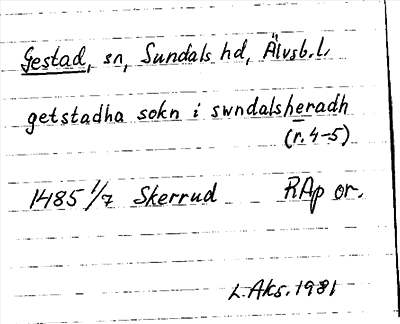 Gestad, sn, Sundals hd, Älvsb. l.
getstadha sokn i swndalsheradh
(r. 4-5)
1485 1/7 Skerrud RAp or.
L. Aks. 1981